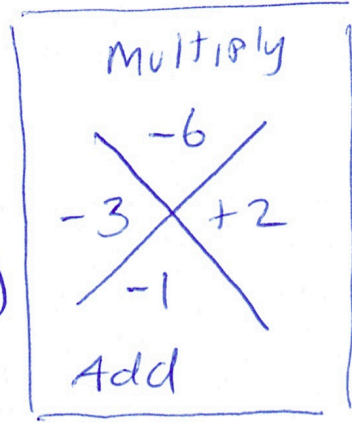 Multiply
-6
-3 +2
-1
Add